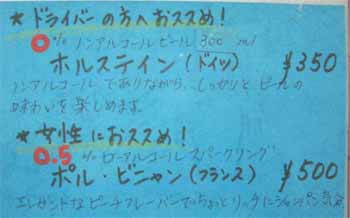 ★ ドライバーの方へおススメ!
0% ノンアルコールビール 300 ml
ホルステイン(ドイツ) ¥350
ノンアルコールでありながら、しっかりとビールの
味わいを楽しめます。
★ 女性におススメ!
0.5% ローアルコールスパークリング
ポル・ビニャン(フランス) ¥500
エレガントなピーチフレーバーでちょっとリッチにシャンパン気分